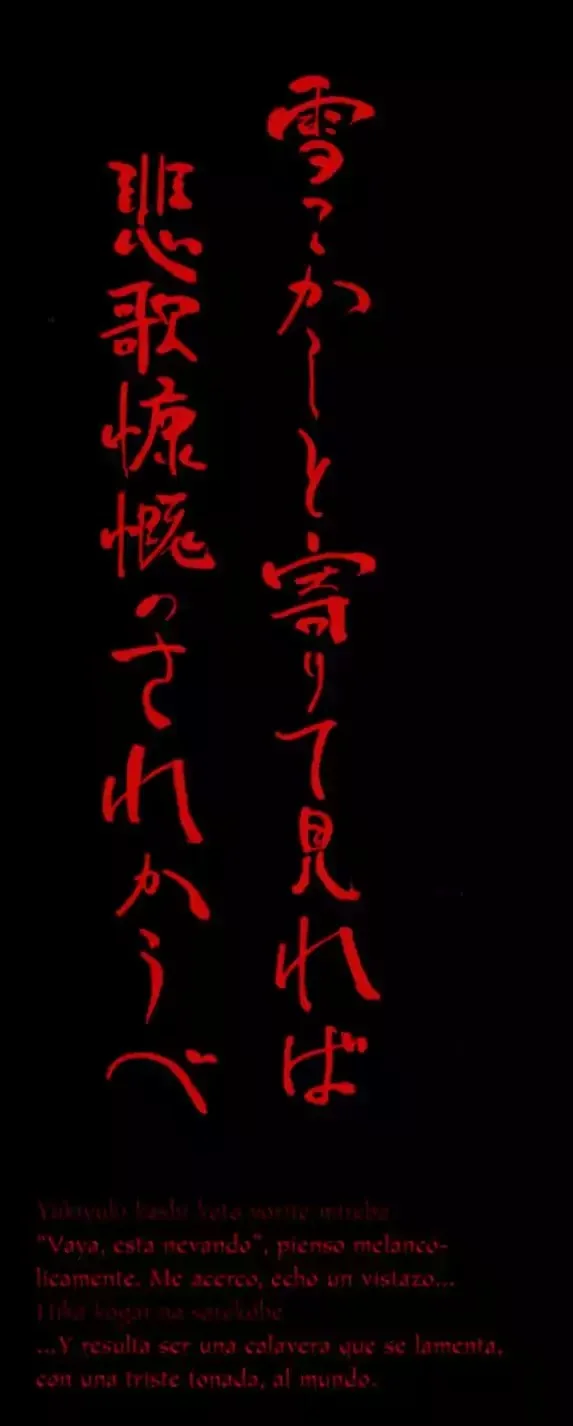 雪こかしと寄りて見れば
悲歌慷慨のされかうべ
kashi yorite mireba
"Vaya, esta nevando", pienso melancó-
licamente. Me acerco, echo un vistazo...
Hika kogai na sarekobe
...Y resulta ser una calavera que se lamenta,
con una triste tonada, al mundo.